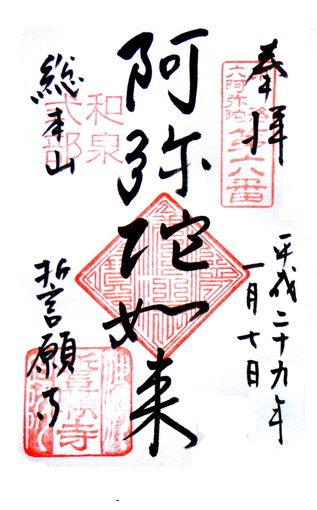 奉拝
六阿弥陀
第六番
平成二十九年
一月七日
阿弥陀如来
和泉
式部
総本山
誓願寺
誓願寺